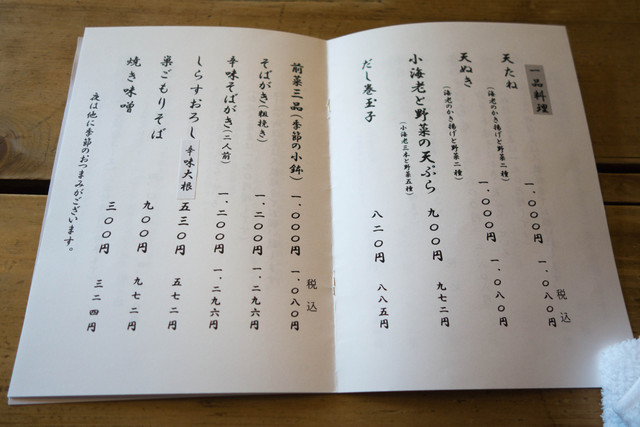 一品料理
天たね
(海老のかき揚げと野菜二種)
一、〇〇〇円 一、〇八〇円
税込
天ぬき
(海老のかき揚げと野菜二種)
一、〇〇〇円 一、〇八〇円
小海老と野菜の天ぷら
(小海老三本と野菜五種)
九〇〇円 九七二円
だし巻玉子
八二〇円 八八五円
税込
前菜三品(季節の小鉢)
一、〇〇〇円 一、〇八〇円
そばがき(粗挽き)
一、二〇〇円 一、二九六円
辛味そばがき(二人前)
一、二〇〇円 一、二九六円
しらすおろし 辛味大根
五三〇円 五七二円
巣ごもりそば
九〇〇円 九七二円
焼き味噌
三〇〇円 三二四円
夜は他に季節のおつまみがございます。